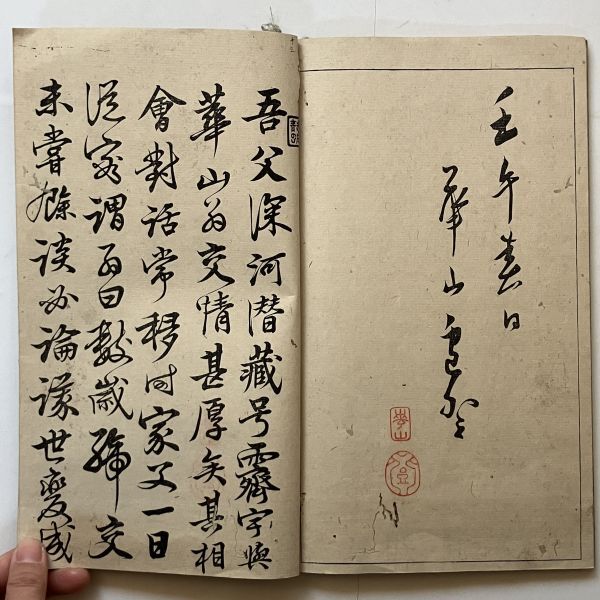 壬午春日
華山邊登
吾父深河潜藏号霽宇與
華山翁交情甚厚矣其相
會對話常移时家父一日
從容謂翁曰數歳締交
未嘗餘談必論議世變盛